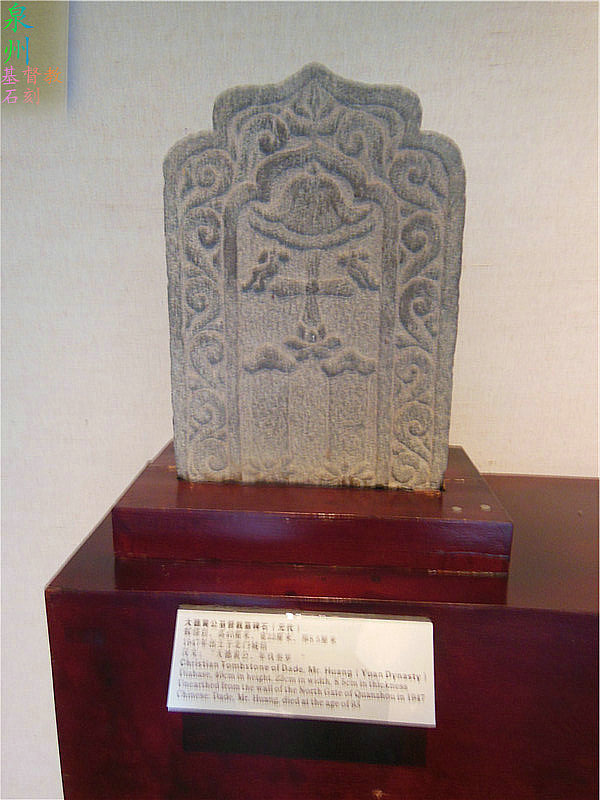 泉
州
基督教
石刻
大德黄公基督教墓碑石（元代）
辉绿岩，高40厘米、宽22厘米、厚8.5厘米
1947年出土于北门城墙
汉文：“大德黄公，年玖叁岁
Christian Tombstone of Dade, Mr. Huang ( Yuan Dynasty )
Diabase, 40cm in height, 22cm in width, 8.5cm in thickness
Unearthed from the wall of the North Gate of Quanzhou in 1947
Chinese: Dade, Mr. Huang, died at the age of 93